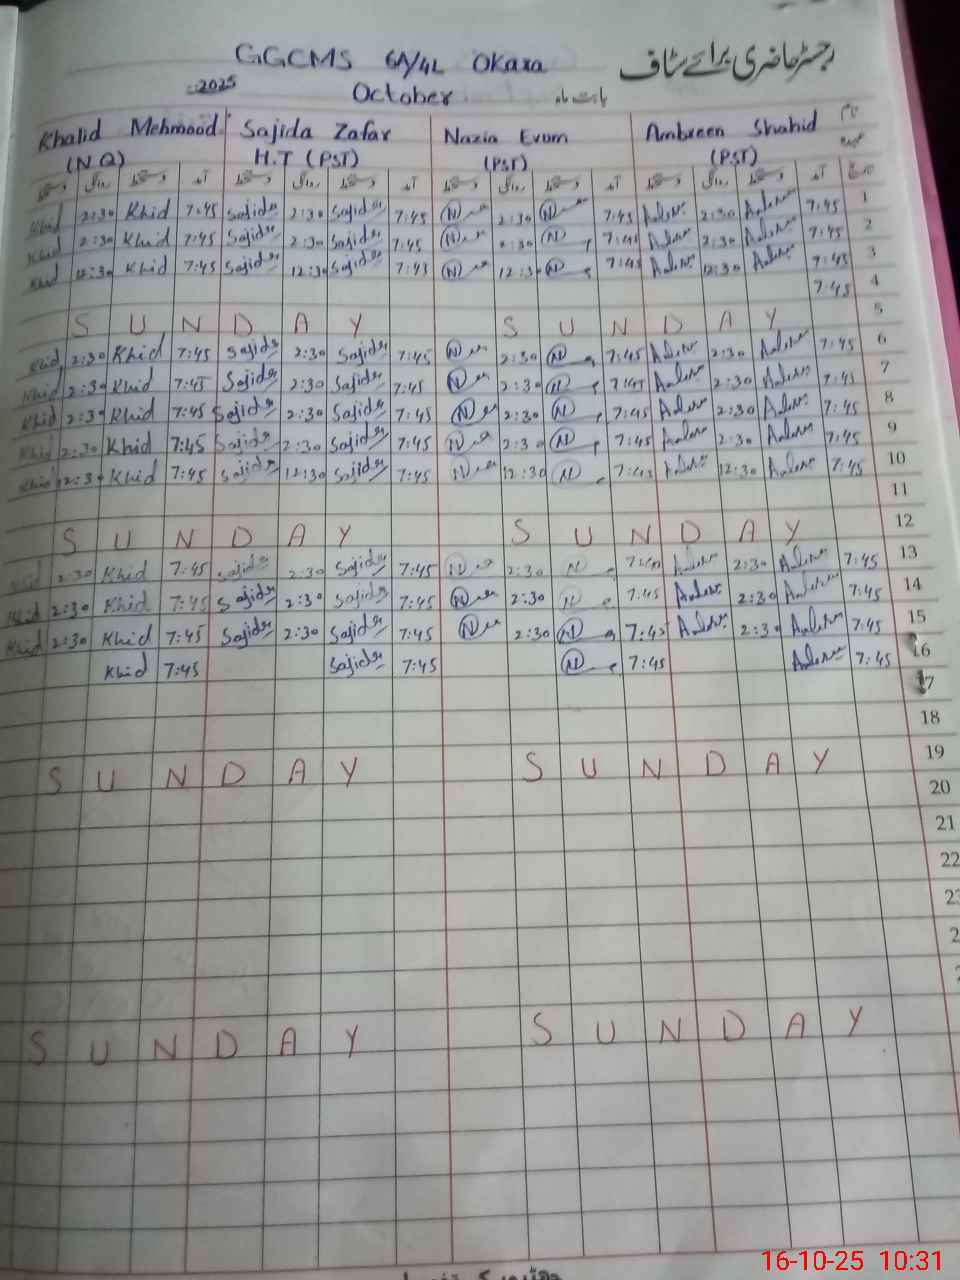 رجسٹر حاضری برائے سٹاف
GGCMS 6A/4L Okara
October 2025 بابت ماہ
Khalid Mehmood Sajida Zafar Nazia Erum Ambreen Shahid نام
(N.Q) H.T (PST) (PST) (PST) عہدہ
دستخط روانگی دستخط آمد دستخط روانگی دستخط آمد دستخط روانگی دستخط آمد دستخط روانگی دستخط آمد تاریخ
Khid 2:30 Khid 7:45 Sajida 2:30 Sajida 7:45 N 2:30 N 7:45 2:30 7:45 1
Khid 2:30 Khid 7:45 Sajida 2:30 Sajida 7:45 N 2:30 N 7:45 2:30 7:45 2
Khid 12:30 Khid 7:45 Sajida 12:30 Sajida 7:45 N 12:30 N 7:45 12:30 7:45 3
7:45 4
S U N D A Y S U N D A Y 5
Khid 2:30 Khid 7:45 Sajida 2:30 Sajida 7:45 N 2:30 N 7:45 2:30 7:45 6
Khid 2:30 Khid 7:45 Sajida 2:30 Sajida 7:45 N 2:30 N 7:45 2:30 7:45 7
Khid 2:30 Khid 7:45 Sajida 2:30 Sajida 7:45 N 2:30 N 7:45 2:30 7:45 8
Khid 2:30 Khid 7:45 Sajida 2:30 Sajida 7:45 N 2:30 N 7:45 2:30 7:45 9
Khid 12:30 Khid 7:45 Sajida 12:30 Sajida 7:45 N 12:30 N 7:45 12:30 7:45 10
11
S U N D A Y S U N D A Y 12
Khid 2:30 Khid 7:45 Sajida 2:30 Sajida 7:45 N 2:30 N 2:30 7:45 13
Khid 2:30 Khid 7:45 Sajida 2:30 Sajida 7:45 N 2:30 N 7:45 2:30 7:45 14
Khid 2:30 Khid 7:45 Sajida 2:30 Sajida 7:45 N 2:30 N 7:45 2:30 7:45 15
Khid 7:45 Sajida 7:45 N 7:45 7:45 16
17
18
S U N D A Y S U N D A Y 19
20
21
22
S U N D A Y S U N D A Y
16-10-25 10:31